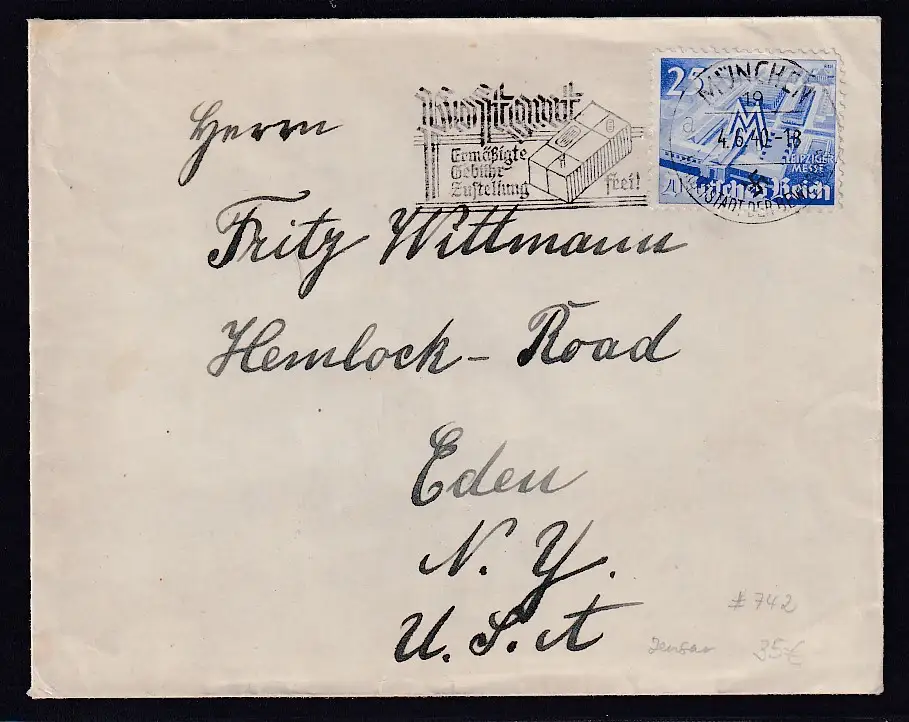 Herrn
Fritz Wittmann
Hemlock - Road
Eden
N. Y.
U. S. A
Ermäßigte
Gebühr
Zustellung frei!
MÜNCHEN
19
a
4.6.40-18
LEIPZIGER
MESSE
Reich
STADT DER
# 742
35€